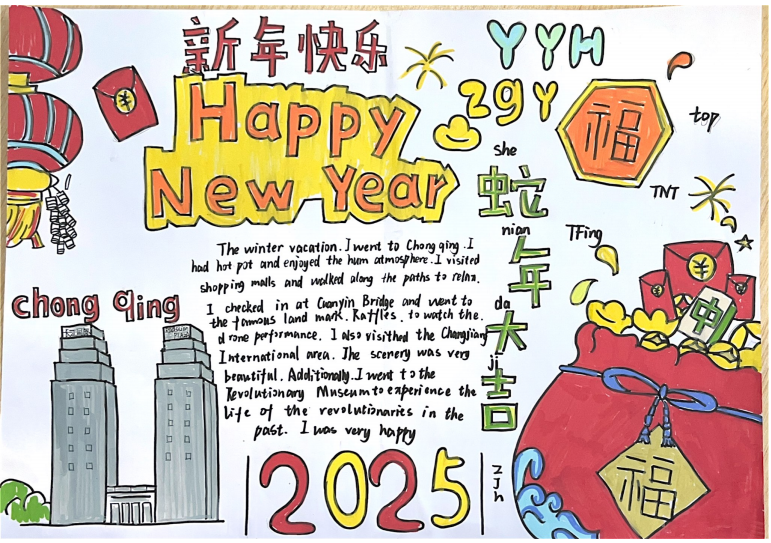 新年快乐
YYH
Happy
zgy
New Year
福
top
she
蛇
TNT
nian
年
TFing
The winter vacation. I went to Chong qing. I
had hot pot and enjoyed the hum atmosphere. I visited
shopping malls and walked along the paths to relax.
da
大
I checked in at Guanyin Bridge and went to
the famous land mark. Raffles. to watch the
drone performance. I also visithed the Changjiang
International area. The scenery was very
beautiful. Additionally. I went to the
Revolutionary Museum to experience the
life of the revolutionaries in the
past. I was very happy
ji
吉
chong qing
中
福
2025
zJh